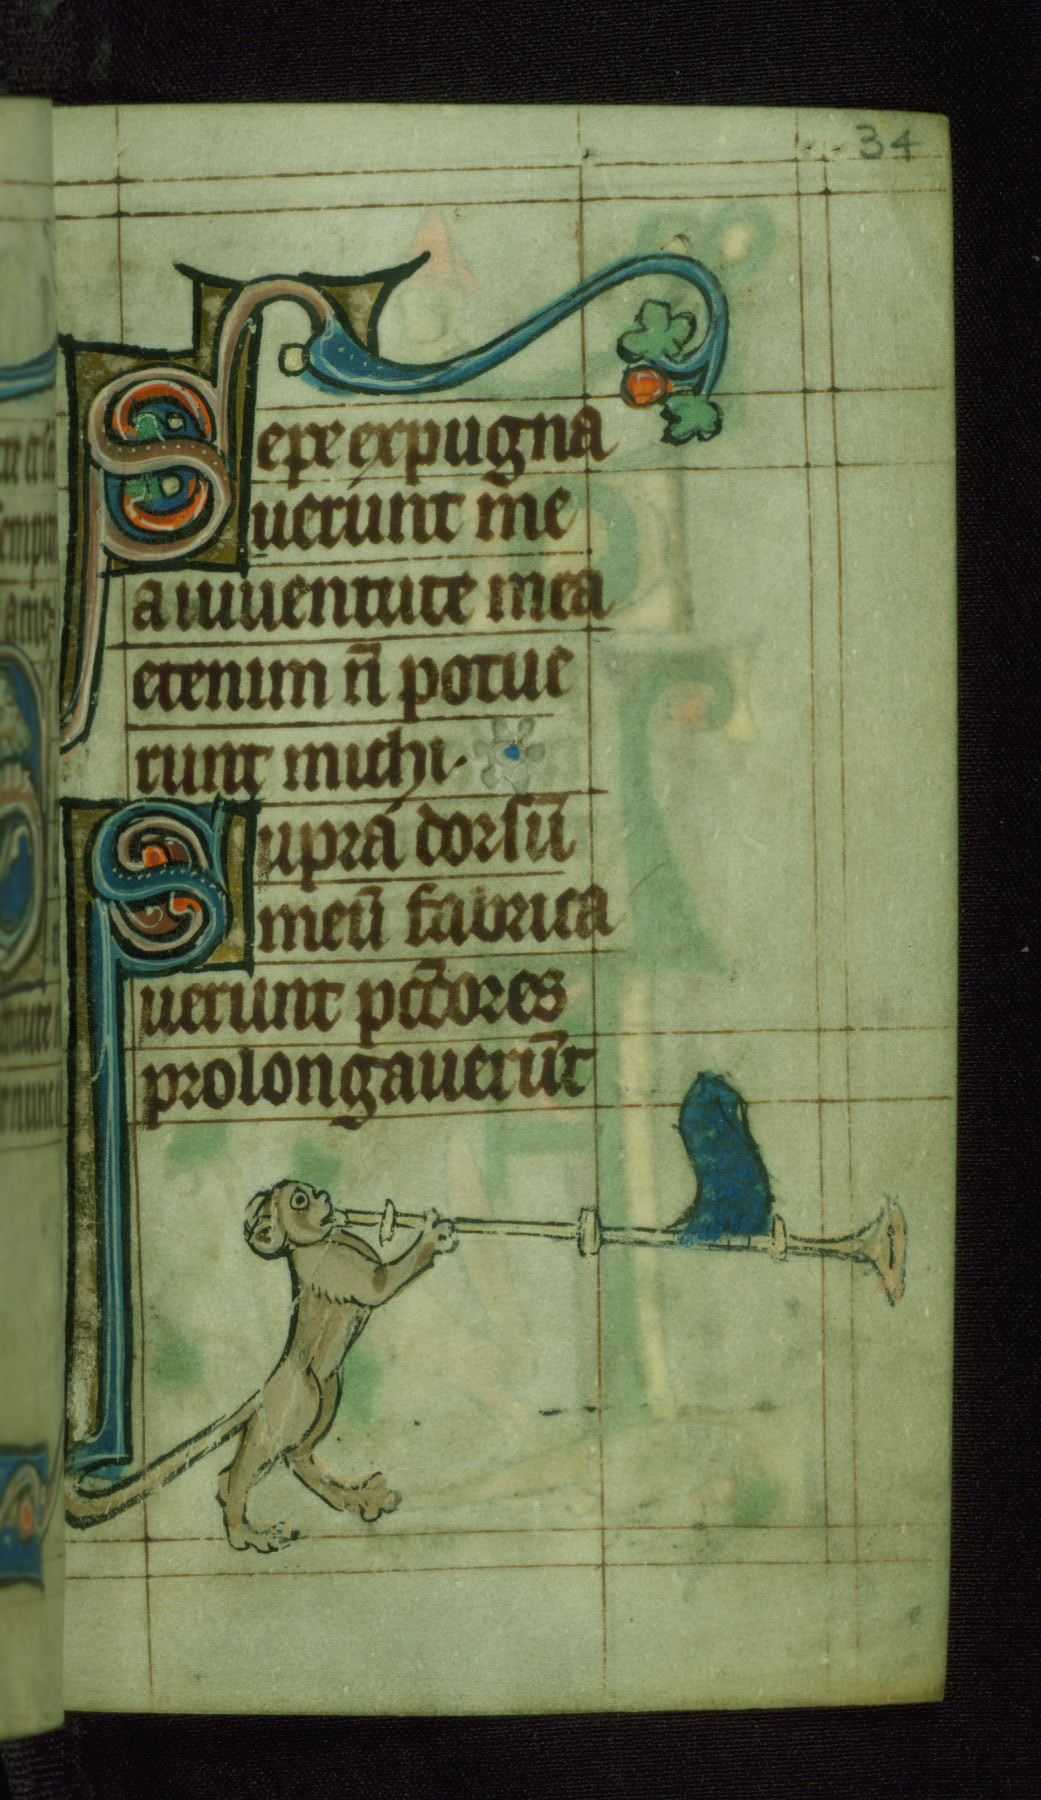 34
Sepe expugna
uerunt me
a iuuentute mea
etenim n̄ potue
runt michi.
Supra dorsū
meū fabrica
uerunt pc̄cores
prolongauerūt